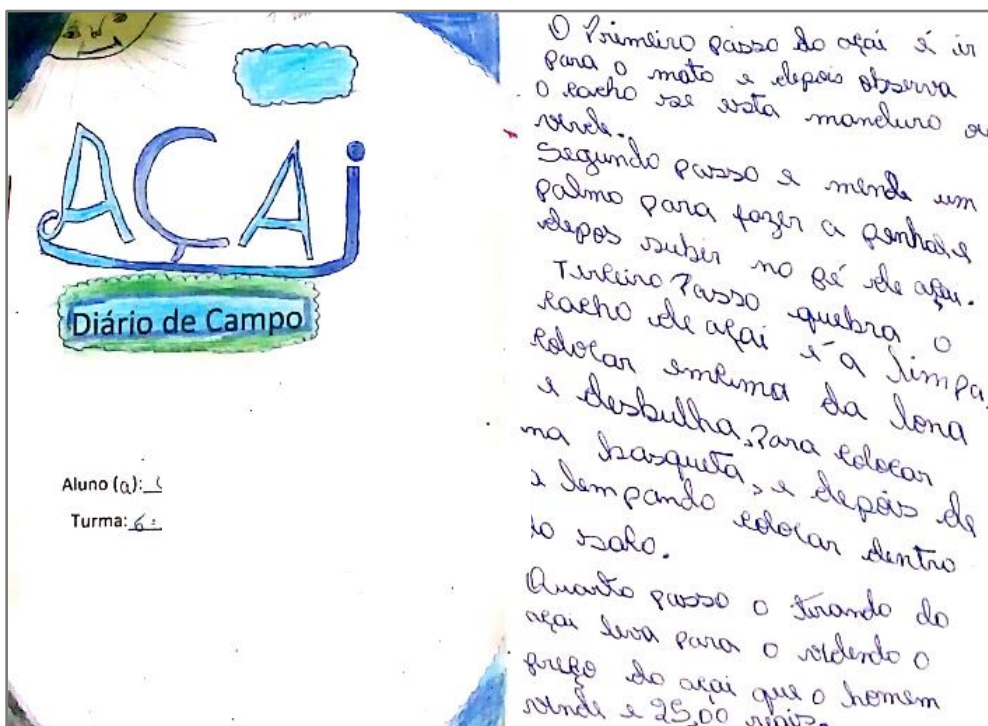 AÇAí
Diário de Campo
Aluno (a):
Turma: 6
O Primeiro passo do açai é ir
para o mato e depois observa
o cacho se esta manduro ou
verde.
Segundo passo e mende um
palmo para fazer a penha e
depos subir no pé de açai.
Terceiro Passo quebra o
cacho de açai é a limpa,
colocar emcima da lona
e desbulha, Para colocar
na basqueta, e depois de
lempando colocar dentro
do sako.
Quarto passo o tirando do
açai leva para o
preço do açai que o homem
vende e 25,00 reais.